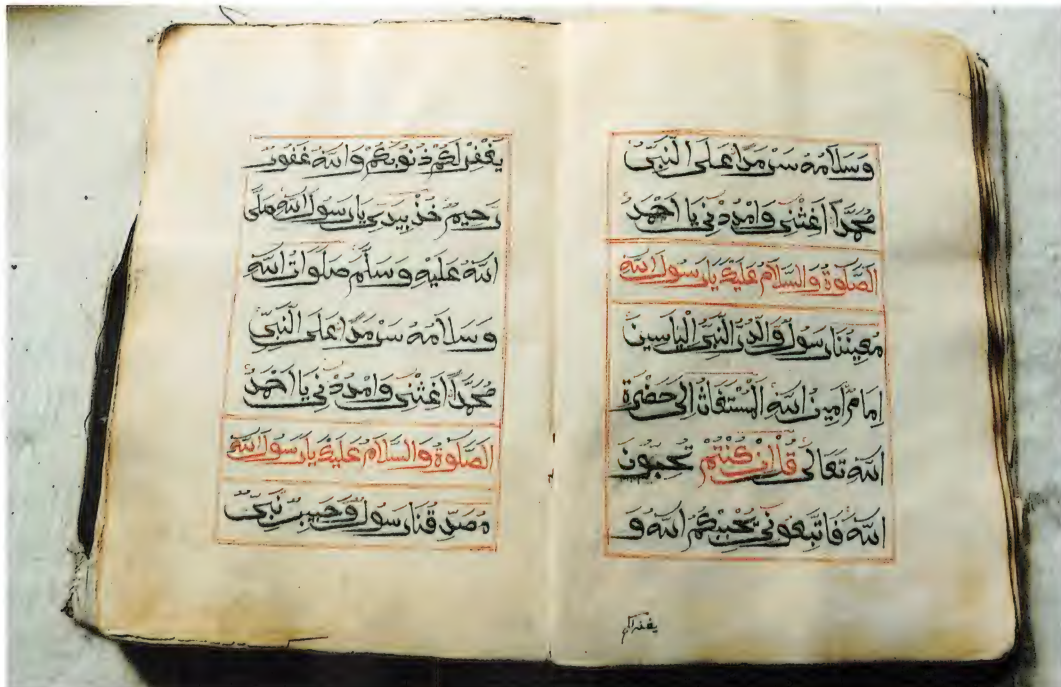 وَسَلَامُهُ سَرْمَدًا عَلَى النَّبِيِّ
مُحَمَّدًا اَغِثْنِي وَامْدُدْنِي يَا اَحْمَدُ
اَلصَّلٰوةُ وَالسَّلَامُ عَلَيْكَ يَا رَسُولَ اللهِ
مُعِينُنَا رَسُولُ وَالدُّرِّ النَّبِيِّ اِلْيَاسِينَ
اِمَامٌ اَمِينُ اللهِ الْمُسْتَغَاثُ اِلَى حَضْرَةِ
اللهِ تَعَالَى قُلْ اِنْ كُنْتُمْ تُحِبُّونَ
اللهَ فَاتَّبِعُونِي يُحْبِبْكُمُ اللهُ وَ
يغفرلكم
يَغْفِرْ لَكُمْ ذُنُوبَكُمْ وَاللهُ غَفُورٌ
رَحِيمٌ خُذْ بِيَدِي يَا رَسُولَ اللهِ صَلَّى
اللهُ عَلَيْهِ وَسَلَّمَ صَلَوَاتُ اللهِ
وَسَلَامُهُ سَرْمَدًا عَلَى النَّبِيِّ
مُحَمَّدًا اَغِثْنِي وَامْدُدْنِي يَا اَحْمَدُ
اَلصَّلٰوةُ وَالسَّلَامُ عَلَيْكَ يَا رَسُولَ اللهِ
مُصَدِّقُنَا رَسُولُ وَحَبِيبٌ نَبِيُّ